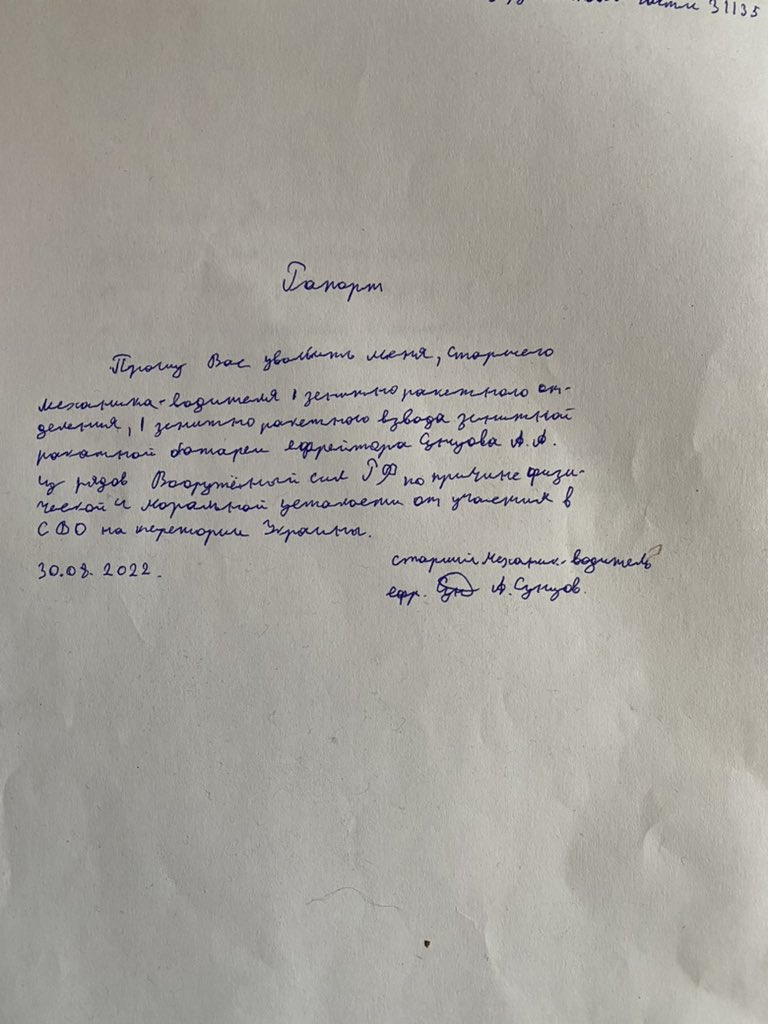 части 31135
Рапорт
Прошу Вас уволить меня, старшего
механика-водителя 1 зенитно ракетного от-
деления, 1 зенитно ракетного взвода зенитной
ракетной батареи ефрейтора Сунцова А.А.
из рядов Вооружённый сил РФ по причине физи-
ческой и моральной усталости от участия в
СВО на територии Украины.
30.08.2022.
старший механик-водитель
ефр. А. Сунцов.